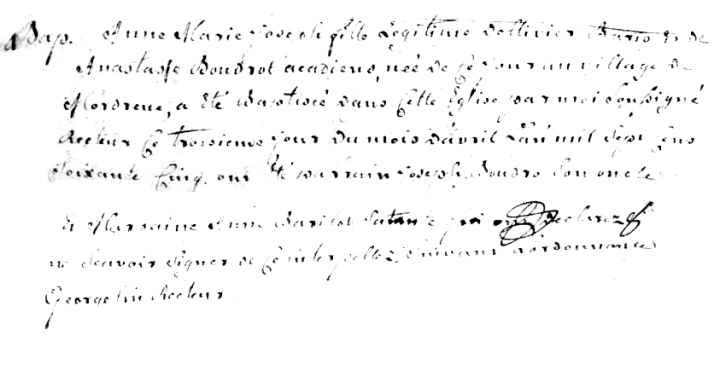 Bap. Anne Marie Joseph fille Legitime dollivier Bario Et de
Anastasse Boudrot acadiens, née de Ce jour au village de
Mordreuc, a Eté Baptisée dans Cette Eglise par moi soussigné
Recteur Ce troisieme jour du mois d'avril L'an mil Sept Cens
Soixante Cinq, ont Eté parrain joseph Boudro Son oncle
Et Marraine Anne Sa tante qui ont Declarez
ne Scavoir signer de Ce interpellez, suivant L'ordonnance
Georgelin Recteur